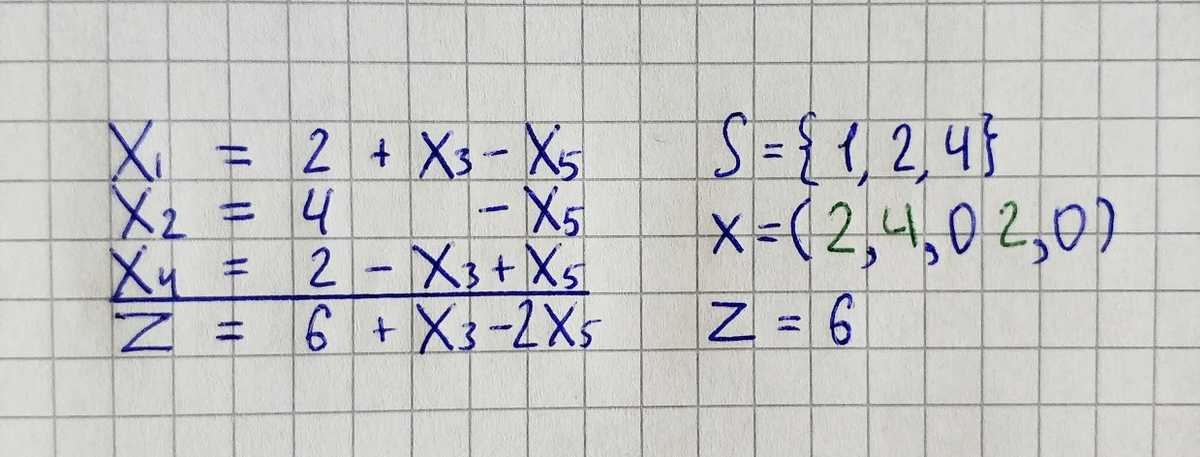 X₁ = 2 + X₃ - X₅
X₂ = 4 - X₅
X₄ = 2 - X₃ + X₅
Z = 6 + X₃ - 2X₅
S = {1, 2, 4}
X = (2, 4, 0 2, 0)
Z = 6